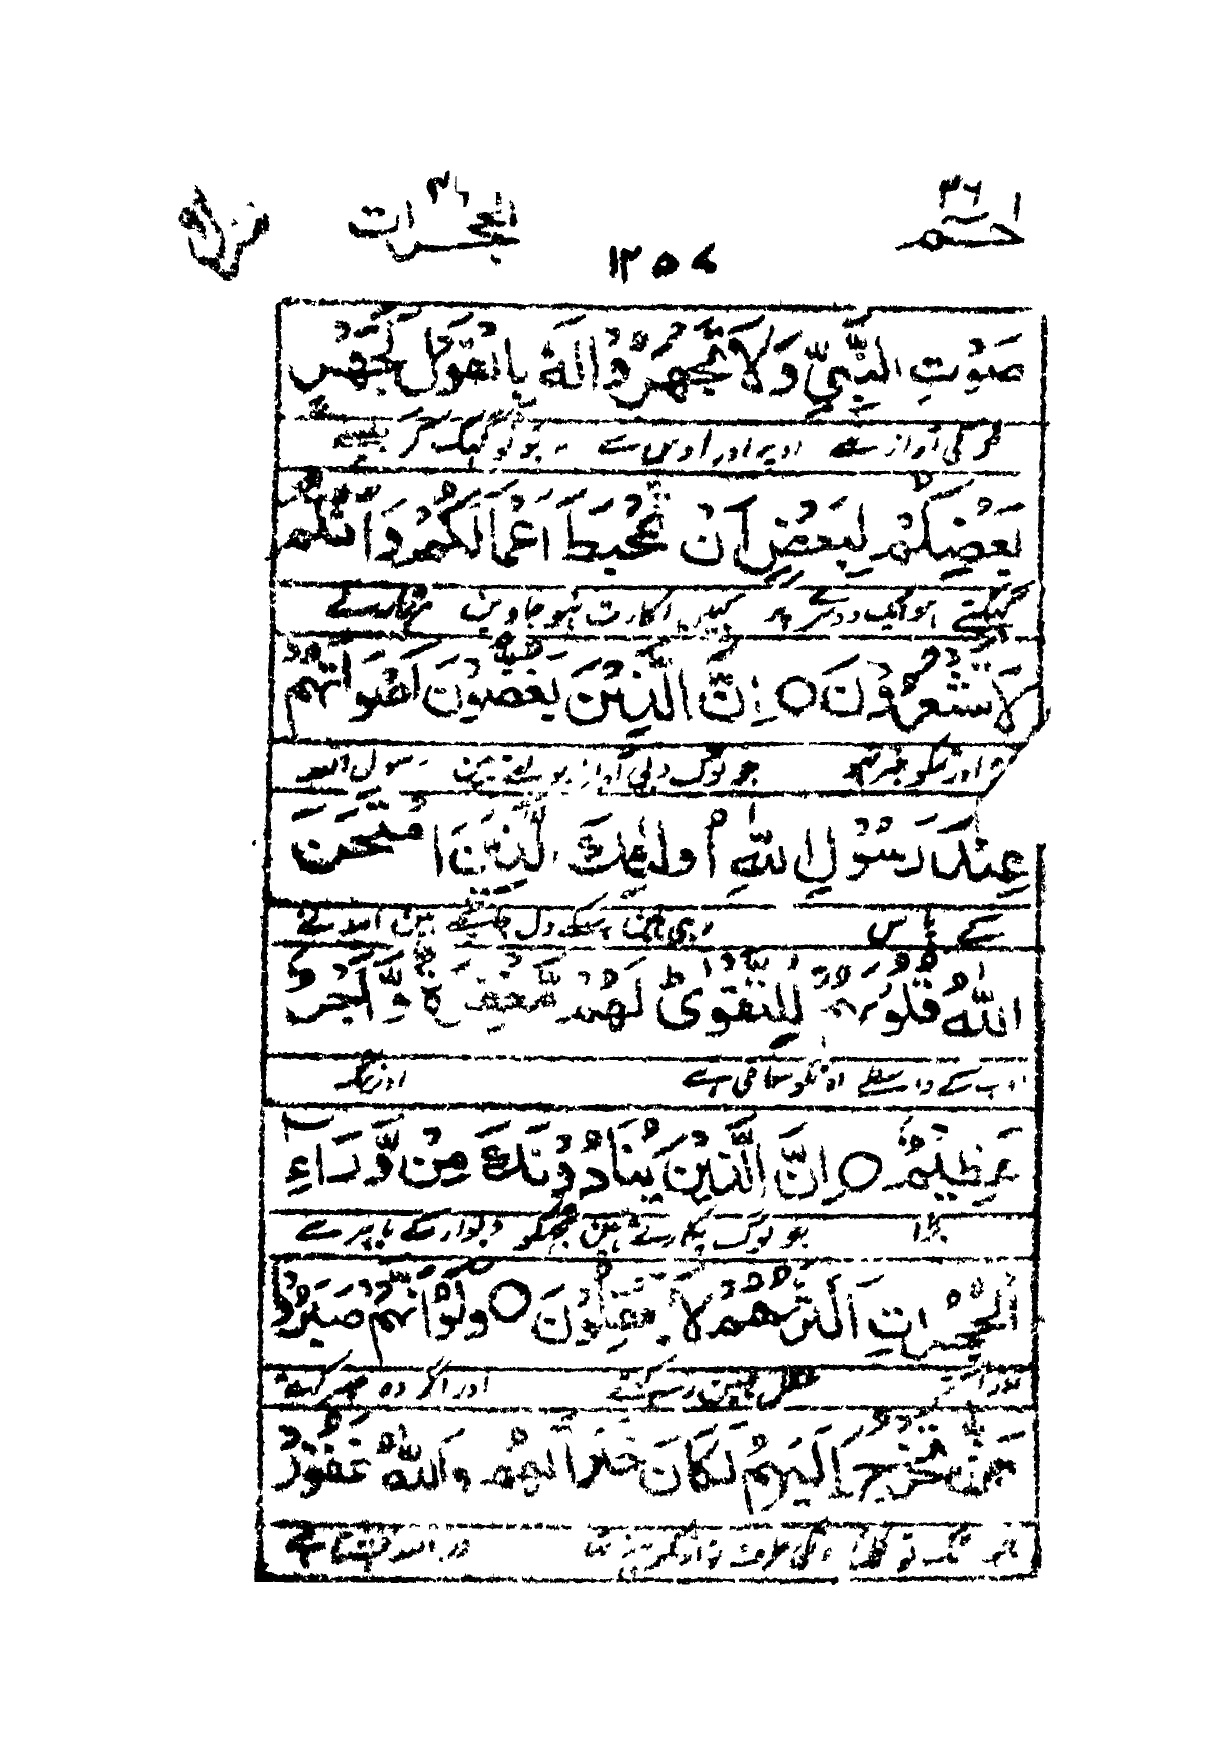 حٰم ٢٦
الحجرات
١٢٥٧
صَوْتِ النَّبِيِّ وَلَا تَجْهَرُوْا لَهٗ بِالْقَوْلِ كَجَهْرِ
آواز سے اور اوس سے نہ بولو کہک کر جیسے
بَعْضِكُمْ لِبَعْضٍ اَنْ تَحْبَطَ اَعْمَالُكُمْ وَاَنْتُمْ
ہو ایک دوسرے پر کہیں اکارت نہو جاوین تمہارے
لَا تَشْعُرُوْنَ ○ اِنَّ الَّذِيْنَ يَغُضُّوْنَ اَصْوَاتَهُمْ
اور تمکو خبر نہو جو لوگ دبی آواز بولتے ہین رسول اللہ
عِنْدَ رَسُوْلِ اللّٰهِ اُولٰئِكَ الَّذِيْنَ امْتَحَنَ
کے پاس وہی ہین جنکے دل جانچے ہین اللہ نے
اللّٰهُ قُلُوْبَهُمْ لِلتَّقْوٰى لَهُمْ مَّغْفِرَةٌ وَّاَجْرٌ
ادب کے واسطے اونکو معافی ہے اور نیگ
عَظِيْمٌ ○ اِنَّ الَّذِيْنَ يُنَادُوْنَكَ مِنْ وَّرَآءِ
بڑا جو لوگ پکارتے ہین تجھکو دیوار کے باہر سے
الْحُجُرٰتِ اَكْثَرُهُمْ لَا يَعْقِلُوْنَ ○ وَلَوْ اَنَّهُمْ صَبَرُوْا
عقل نہین رکہتے اور اگر وہ صبر کرتے
حَتّٰى تَخْرُجَ اِلَيْهِمْ لَكَانَ خَيْرًا لَّهُمْ وَاللّٰهُ غَفُوْرٌ
تو نکلتا اونکی طرف تو اونکو بہتر تہا اور اللہ بخشتا ہے